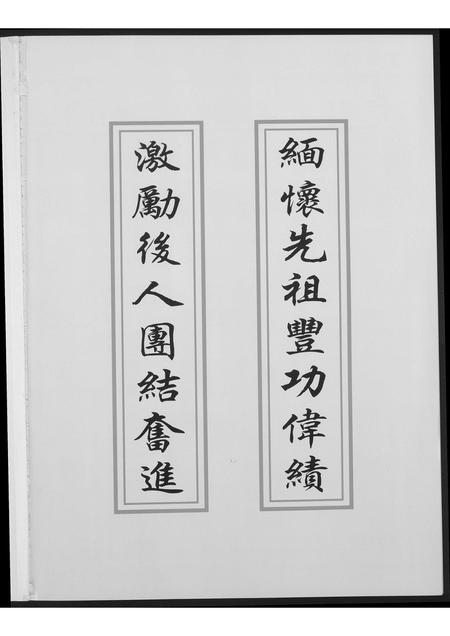 緬懷先祖豐功偉績
激勵後人團結奮進